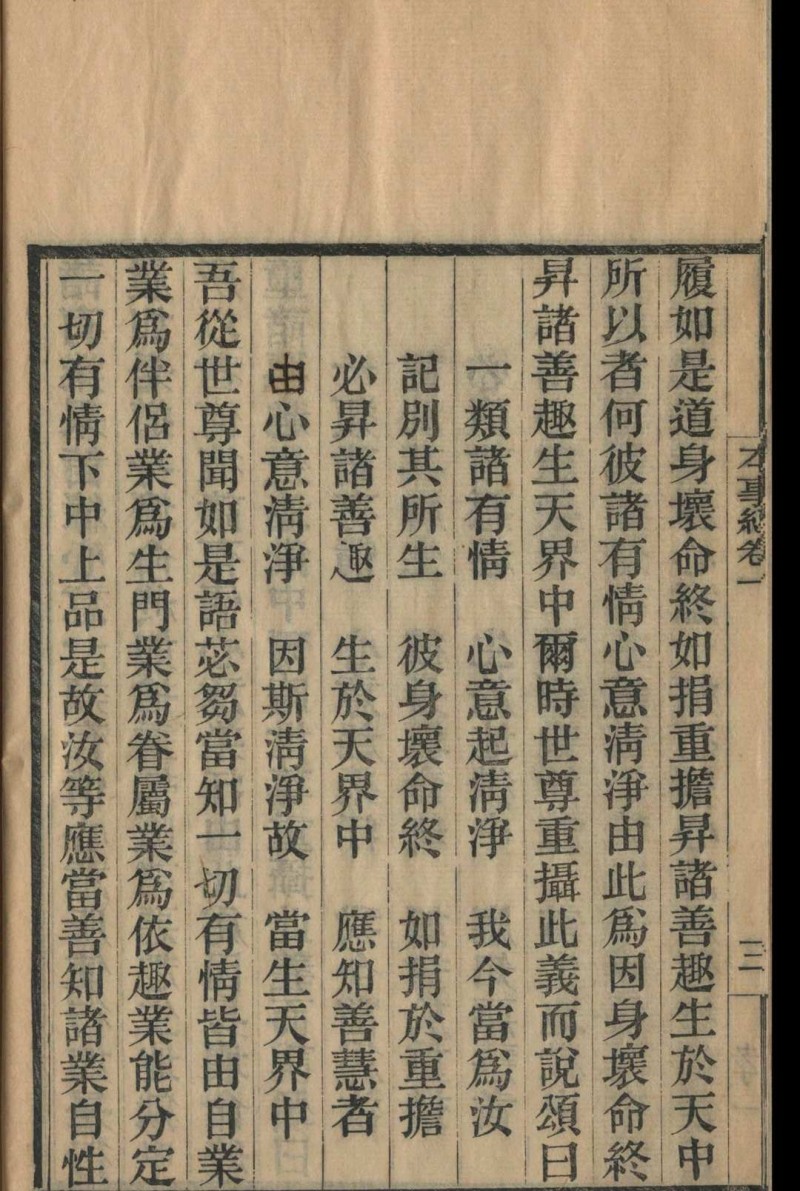 本事經卷一 三
履如是道身壞命終如捐重擔昇諸善趣生於天中
所以者何彼諸有情心意淸淨由此爲因身壞命終
昇諸善趣生天界中爾時世尊重攝此義而說頌曰
一類諸有情 心意起淸淨 我今當爲汝
記別其所生 彼身壞命終 如捐於重擔
必昇諸善趣 生於天界中 應知善慧者
由心意淸淨 因斯淸淨故 當生天界中
吾從世尊聞如是語苾芻當知一切有情皆由自業
業爲伴侶業爲生門業爲眷屬業爲依趣業能分定
一切有情下中上品是故汝等應當善知諸業自性